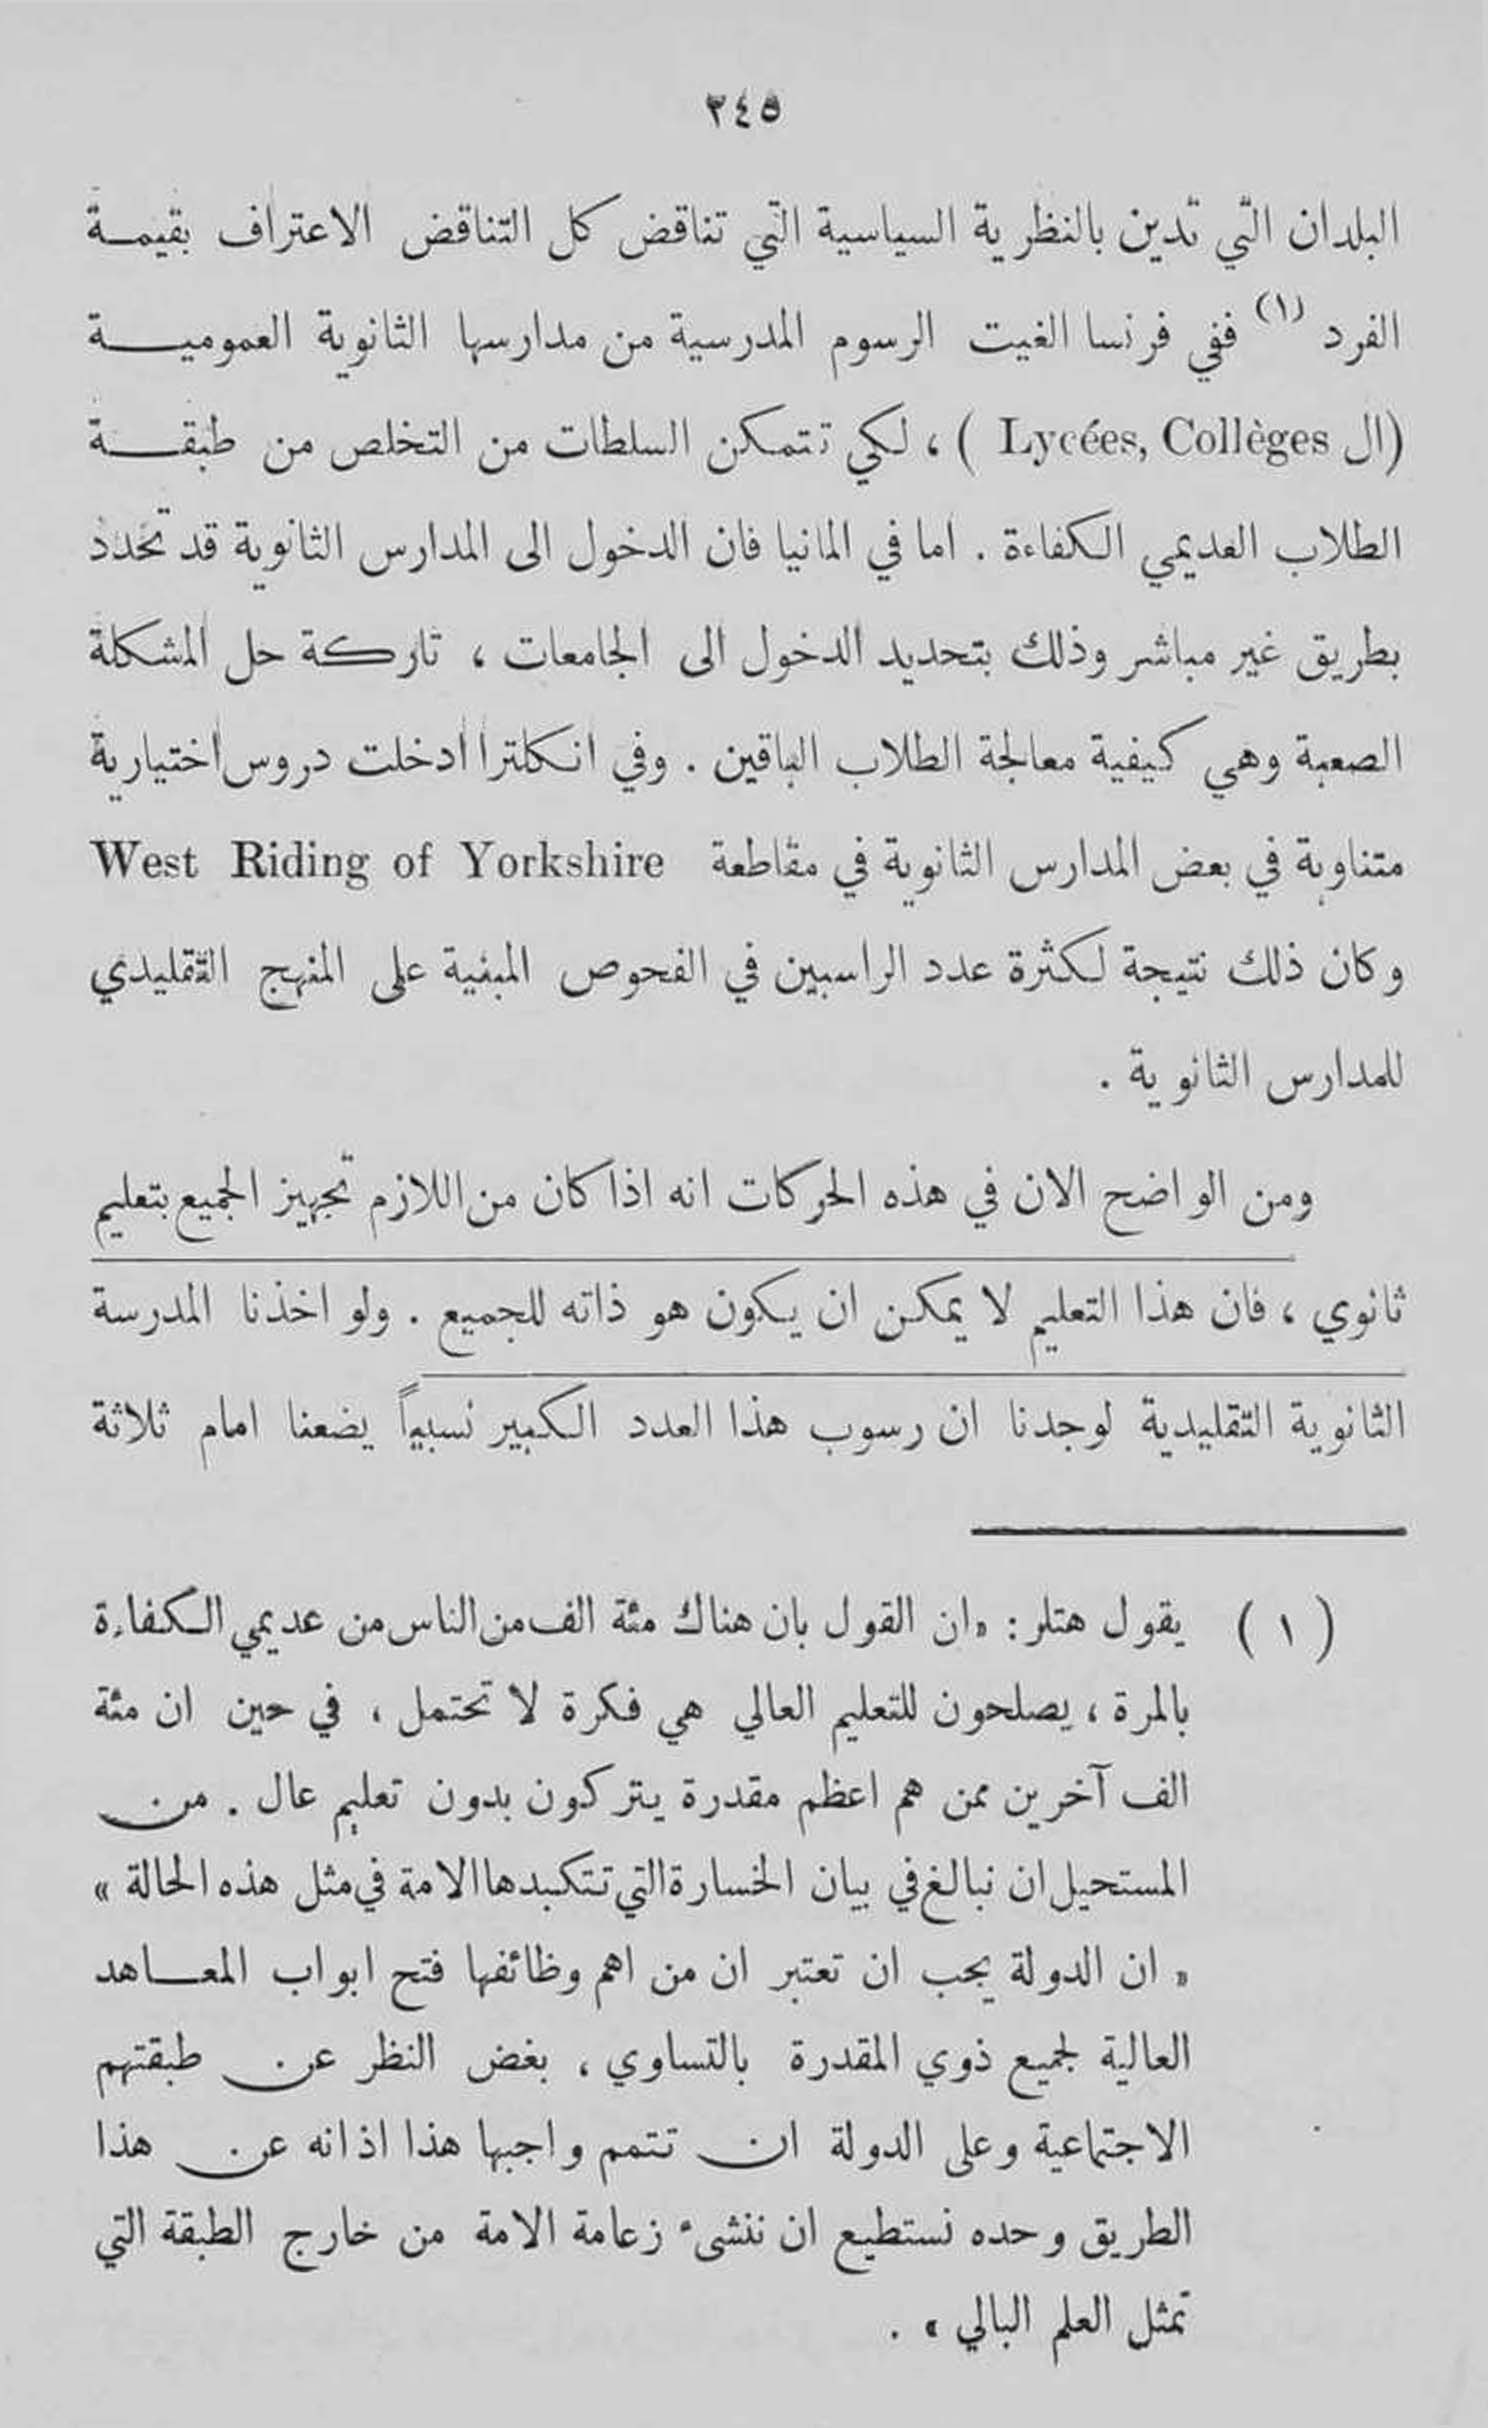 ٢٤٥
البلدان التي تدين بالنظرية السياسية التي تناقض كل التناقض الاعتراف بقيمة
الفرد (١) ففي فرنسا الغيت الرسوم المدرسية من مدارسها الثانوية العمومية
(ال Lycées, Collèges ) ، لكي تتمكن السلطات من التخلص من طبقة
الطلاب العديمي الكفاءة . اما في المانيا فان الدخول الى المدارس الثانوية قد تحدد
بطريق غير مباشر وذلك بتحديد الدخول الى الجامعات ، تاركة حل المشكلة
الصعبة وهي كيفية معالجة الطلاب الباقين . وفي انكلترا ادخلت دروس اختيارية
متناوبة في بعض المدارس الثانوية في مقاطعة West Riding of Yorkshire
وكان ذلك نتيجة لكثرة عدد الراسبين في الفحوص المبنية على المنهج التقليدي
للمدارس الثانوية .
ومن الواضح الان في هذه الحركات انه اذا كان من اللازم تجهيز الجميع بتعليم
ثانوي ، فان هذا التعليم لا يمكن ان يكون هو ذاته للجميع . ولو اخذنا المدرسة
الثانوية التقليدية لوجدنا ان رسوب هذا العدد الكبير نسبياً يضعنا امام ثلاثة
( ١ ) يقول هتلر : « ان القول بان هناك مئة الف من الناس من عديمي الكفاءة
بالمرة ، يصلحون للتعليم العالي هي فكرة لا تحتمل ، في حين ان مئة
الف آخرين ممن هم اعظم مقدرة يتركون بدون تعليم عال . من
المستحيل ان نبالغ في بيان الخسارة التي تتكبدها الامة في مثل هذه الحالة »
« ان الدولة يجب ان تعتبر ان من اهم وظائفها فتح ابواب المعاهد
العالية لجميع ذوي المقدرة بالتساوي ، بغض النظر عن طبقتهم
الاجتماعية وعلى الدولة ان تتمم واجبها هذا اذ انه عن هذا
الطريق وحده نستطيع ان ننشىء زعامة الامة من خارج الطبقة التي
تمثل العلم البالي » .